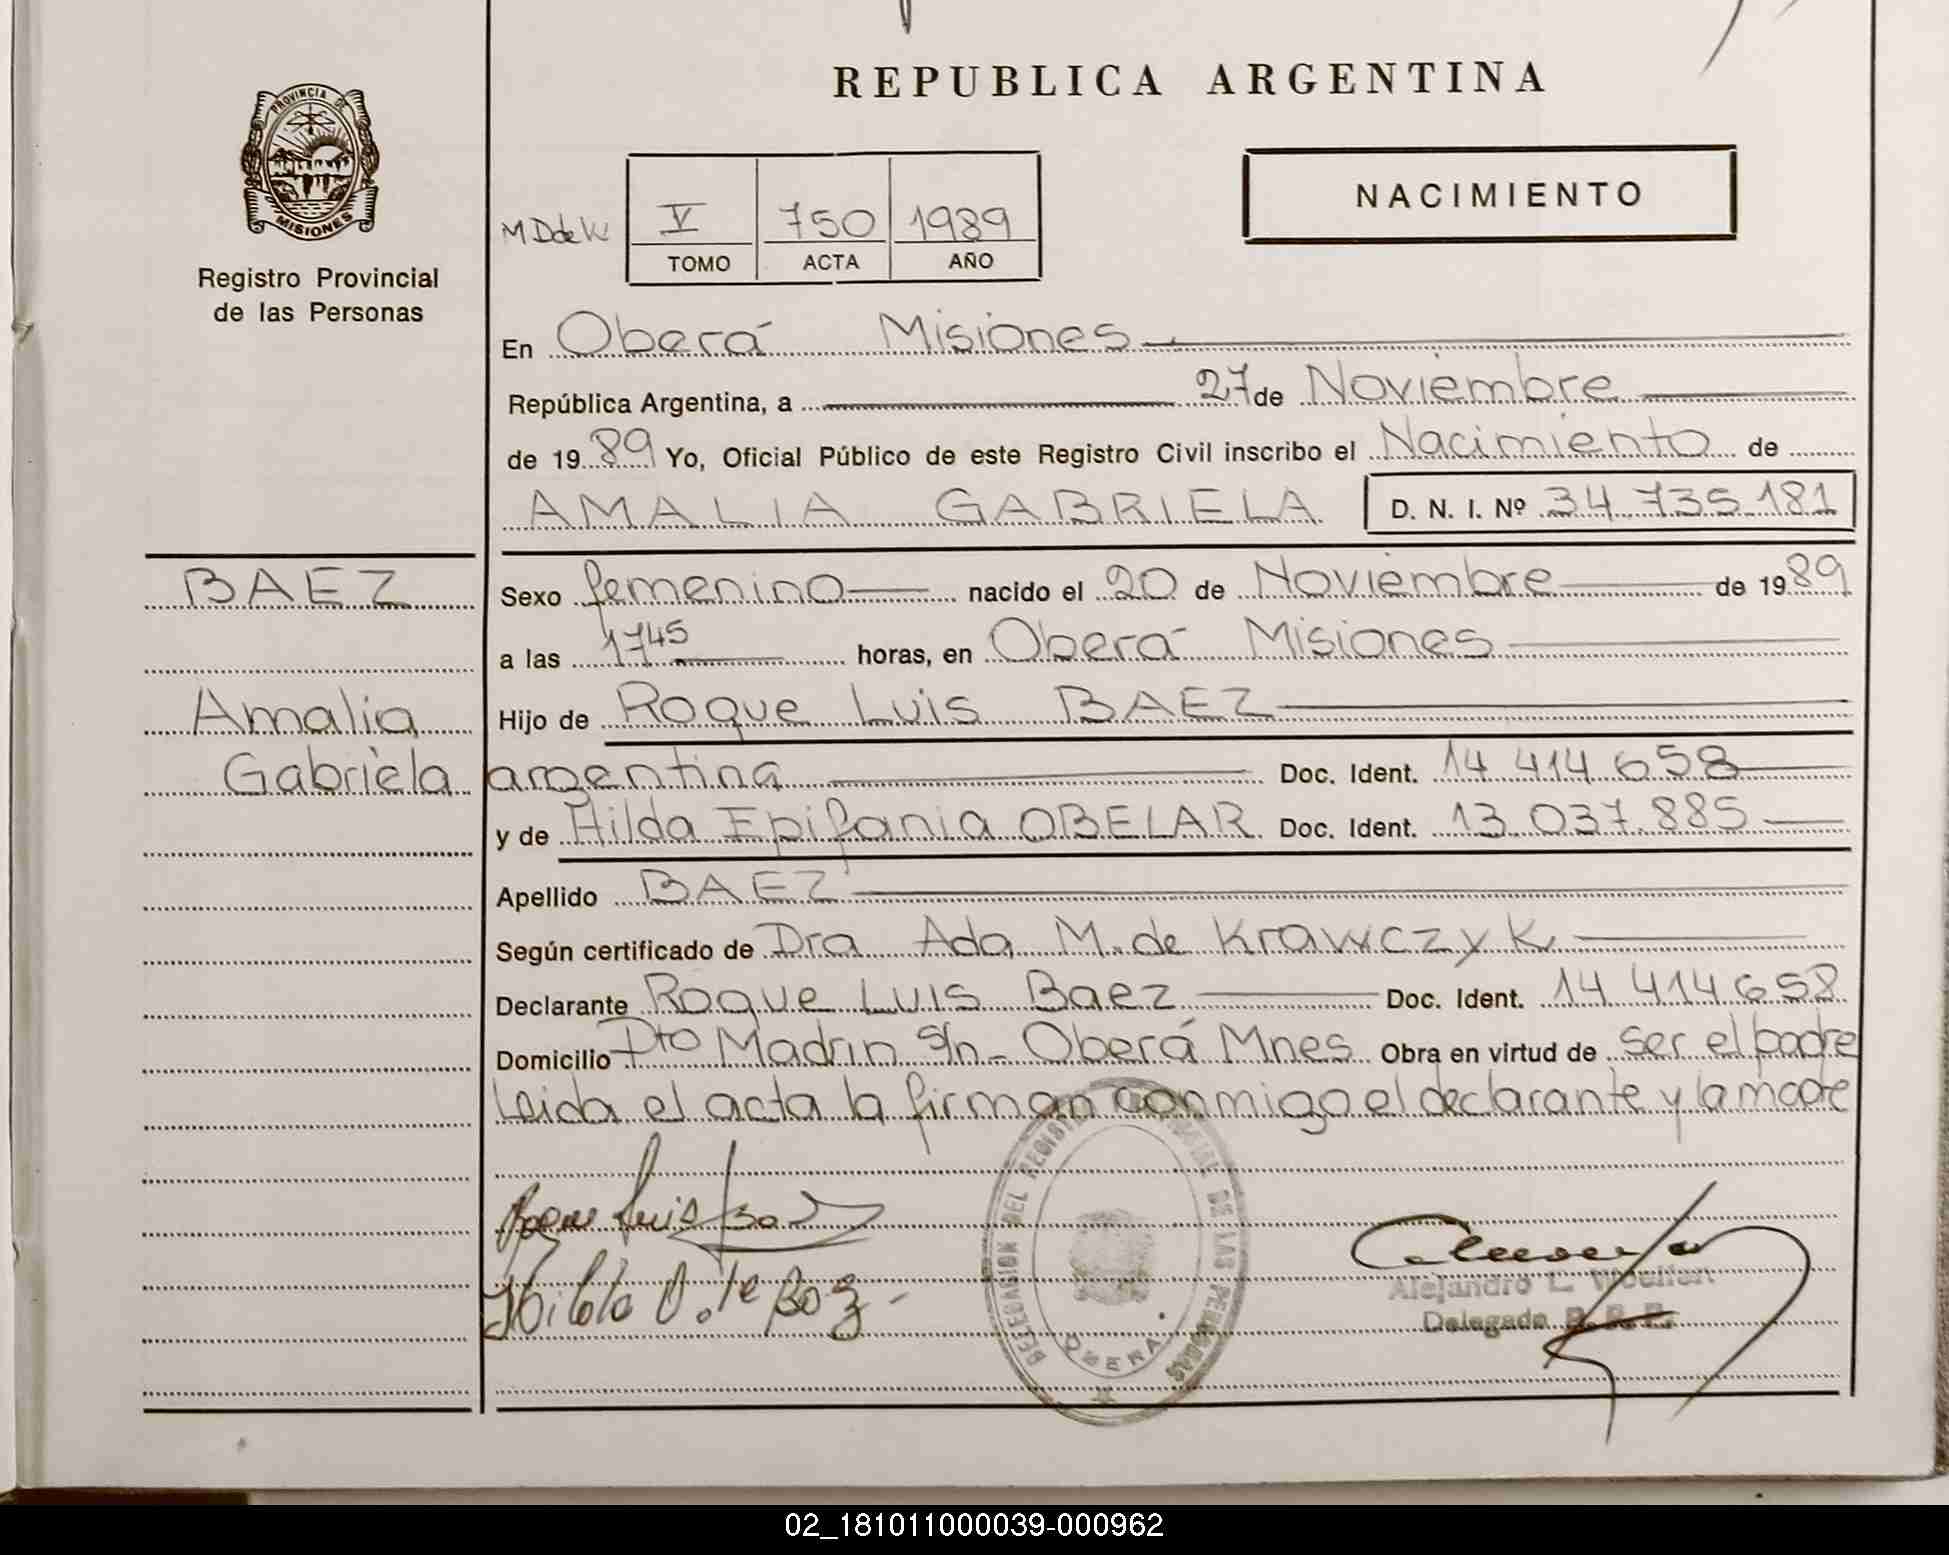 REPUBLICA ARGENTINA
PROVINCIA DE
MISIONES
Registro Provincial
de las Personas
NACIMIENTO
V 750 1989
TOMO ACTA AÑO
En Oberá Misiones
República Argentina, a 27 de Noviembre
de 19 89 Yo, Oficial Público de este Registro Civil inscribo el Nacimiento de
AMALIA GABRIELA D. N. I. Nº 34.735.181
BAEZ
Amalia
Gabriela
Sexo femenino nacido el 20 de Noviembre de 19 89
a las 1745 horas, en Oberá Misiones
Hijo de Roque Luis BAEZ
argentina Doc. Ident. 14 414 658
y de Hilda Epifania OBELAR Doc. Ident. 13 037.885
Apellido BAEZ
Según certificado de Dra Ada M. de Krawczyk
Declarante Roque Luis Baez Doc. Ident. 14 414 658
Domicilio Pto Madrin s/n - Oberá Mnes Obra en virtud de ser el padre
Leida el acta la firman conmigo el declarante y la madre
DELEGACION DEL REGISTRO PROVINCIAL DE LAS PERSONAS
OBERA
Alejandro L.
Delegado R. P. P.
02_181011000039-000962